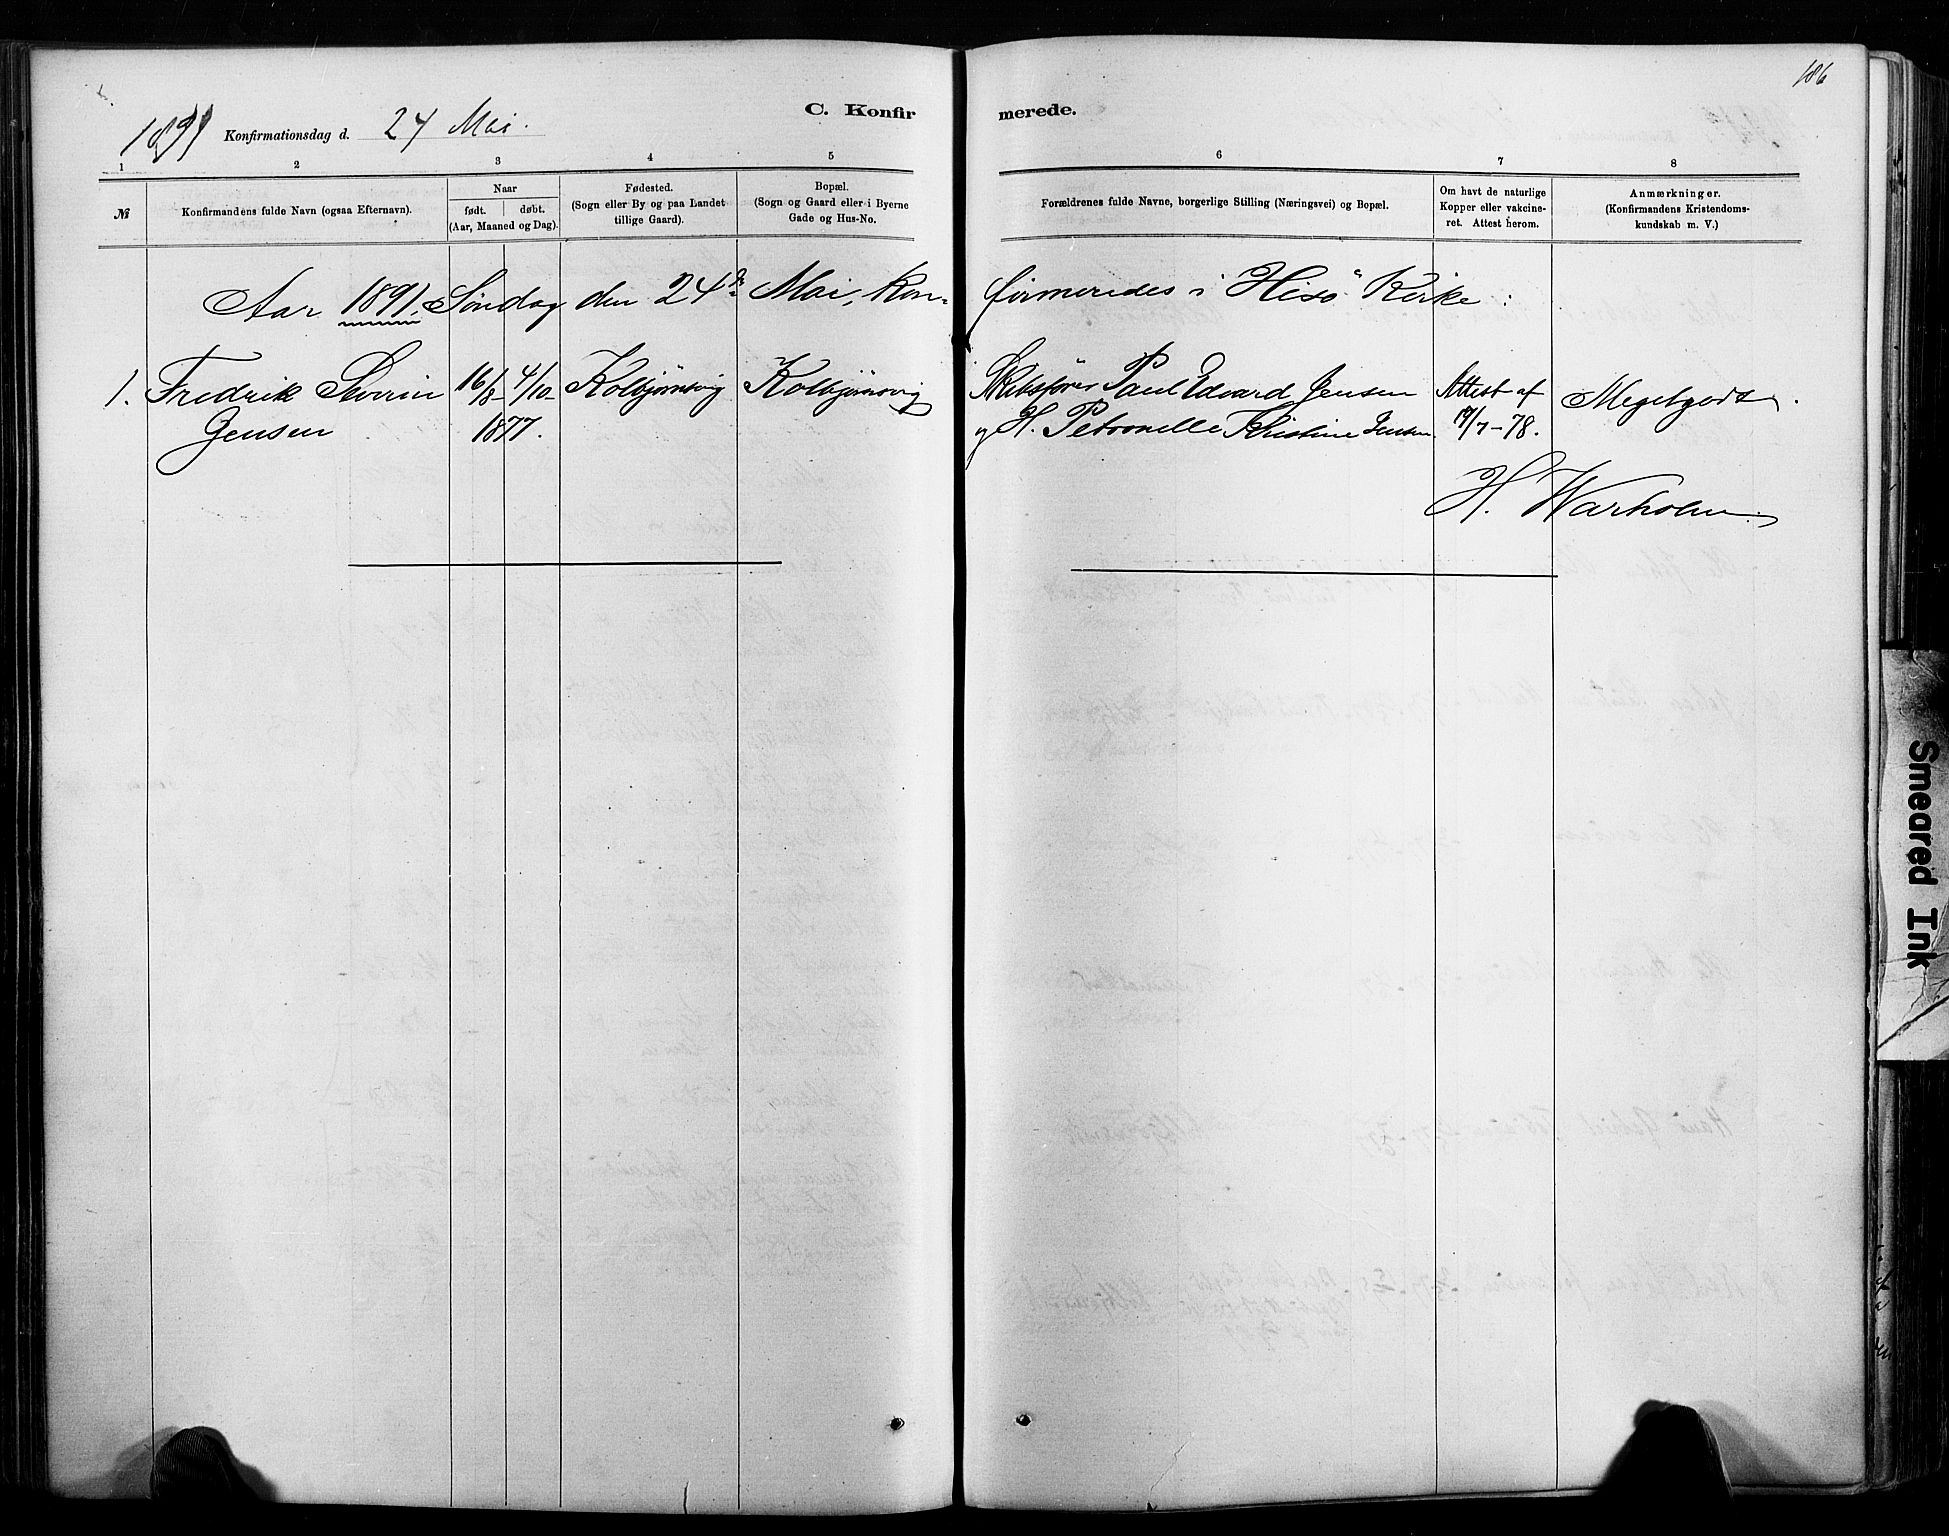 186
C. Konfirmerede.
1891 Konfirmationsdag d. 24 Mai.
1 2 3 4 5 6 7 8
№
Konfirmandens fulde Navn (ogsaa Efternavn).
Naar
født. døbt.
(Aar, Maaned og Dag).
Fødested.
(Sogn eller By og paa Landet
tillige Gaard).
Bopæl.
(Sogn og Gaard eller i Byerne
Gade og Hus-No.
Forældrenes fulde Navne, borgerlige Stilling (Næringsvei) og Bopæl.
Om havt de naturlige
Kopper eller vakcine-
ret. Attest herom.
Anmærkninger.
(Konfirmandens Kristendoms-
kundskab m. V.)
Aar 1891, Søndag den 24de Mai, kon- firmeredes i Hisö Kirke:
1. Fredrik Severin
Jensen
16/8- 4/10-
1877.
Kolbjørnsvig
Kolbjørnsvig
Skibsfører Paul Edvard Jensen
og H. Petronelle Kristine Jensen
Attest af
19/7-78.
Megetgodt.
H. Warholm.
Smeared Ink